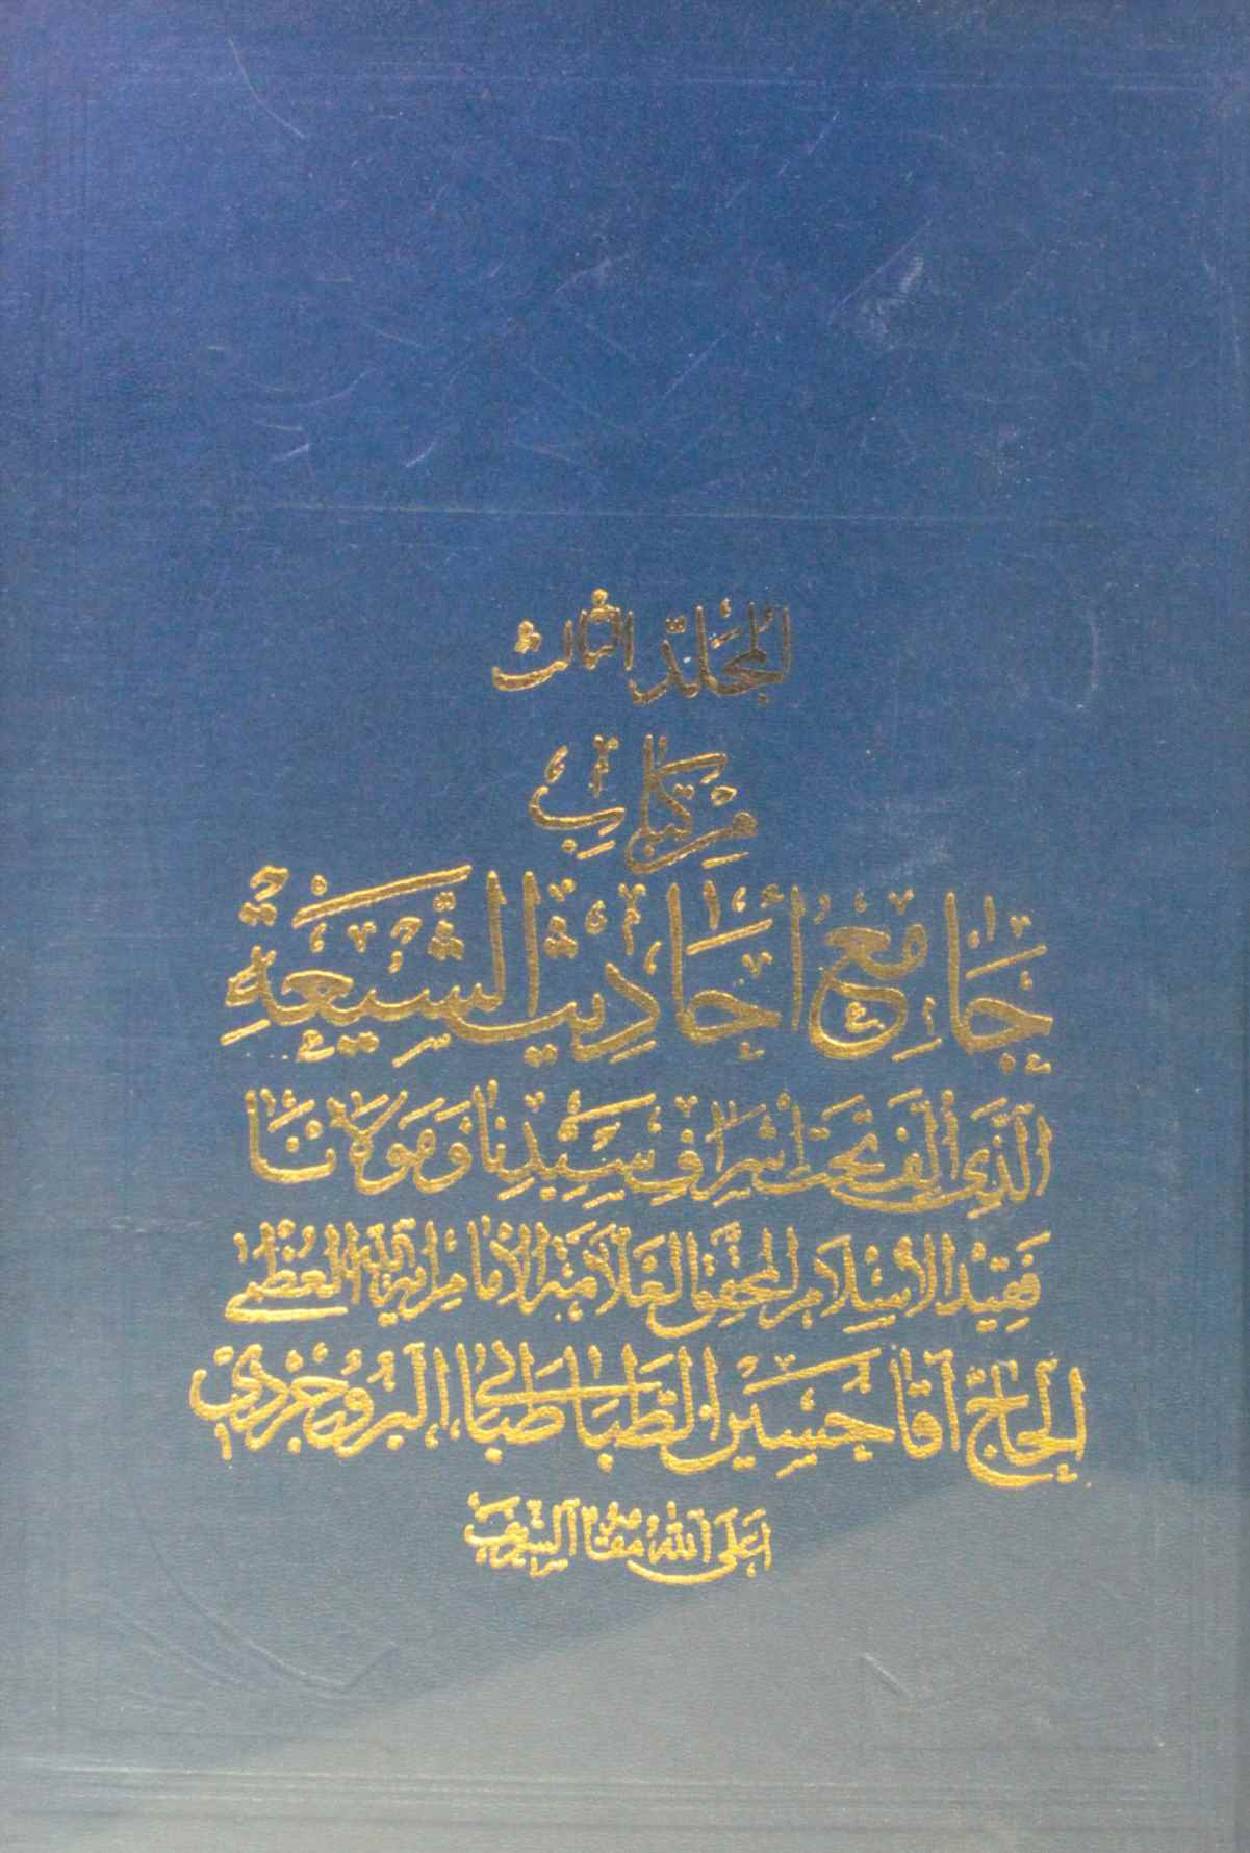 المجلد الثالث
من كتاب
جامع أحاديث الشيعة
الذي ألف تحت إشراف سيدنا ومولانا
فقيد الإسلام المحقق العلامة الإمام آية الله العظمى
الحاج آقا حسين الطباطبائي البروجردي
أعلى الله مقامه الشريف